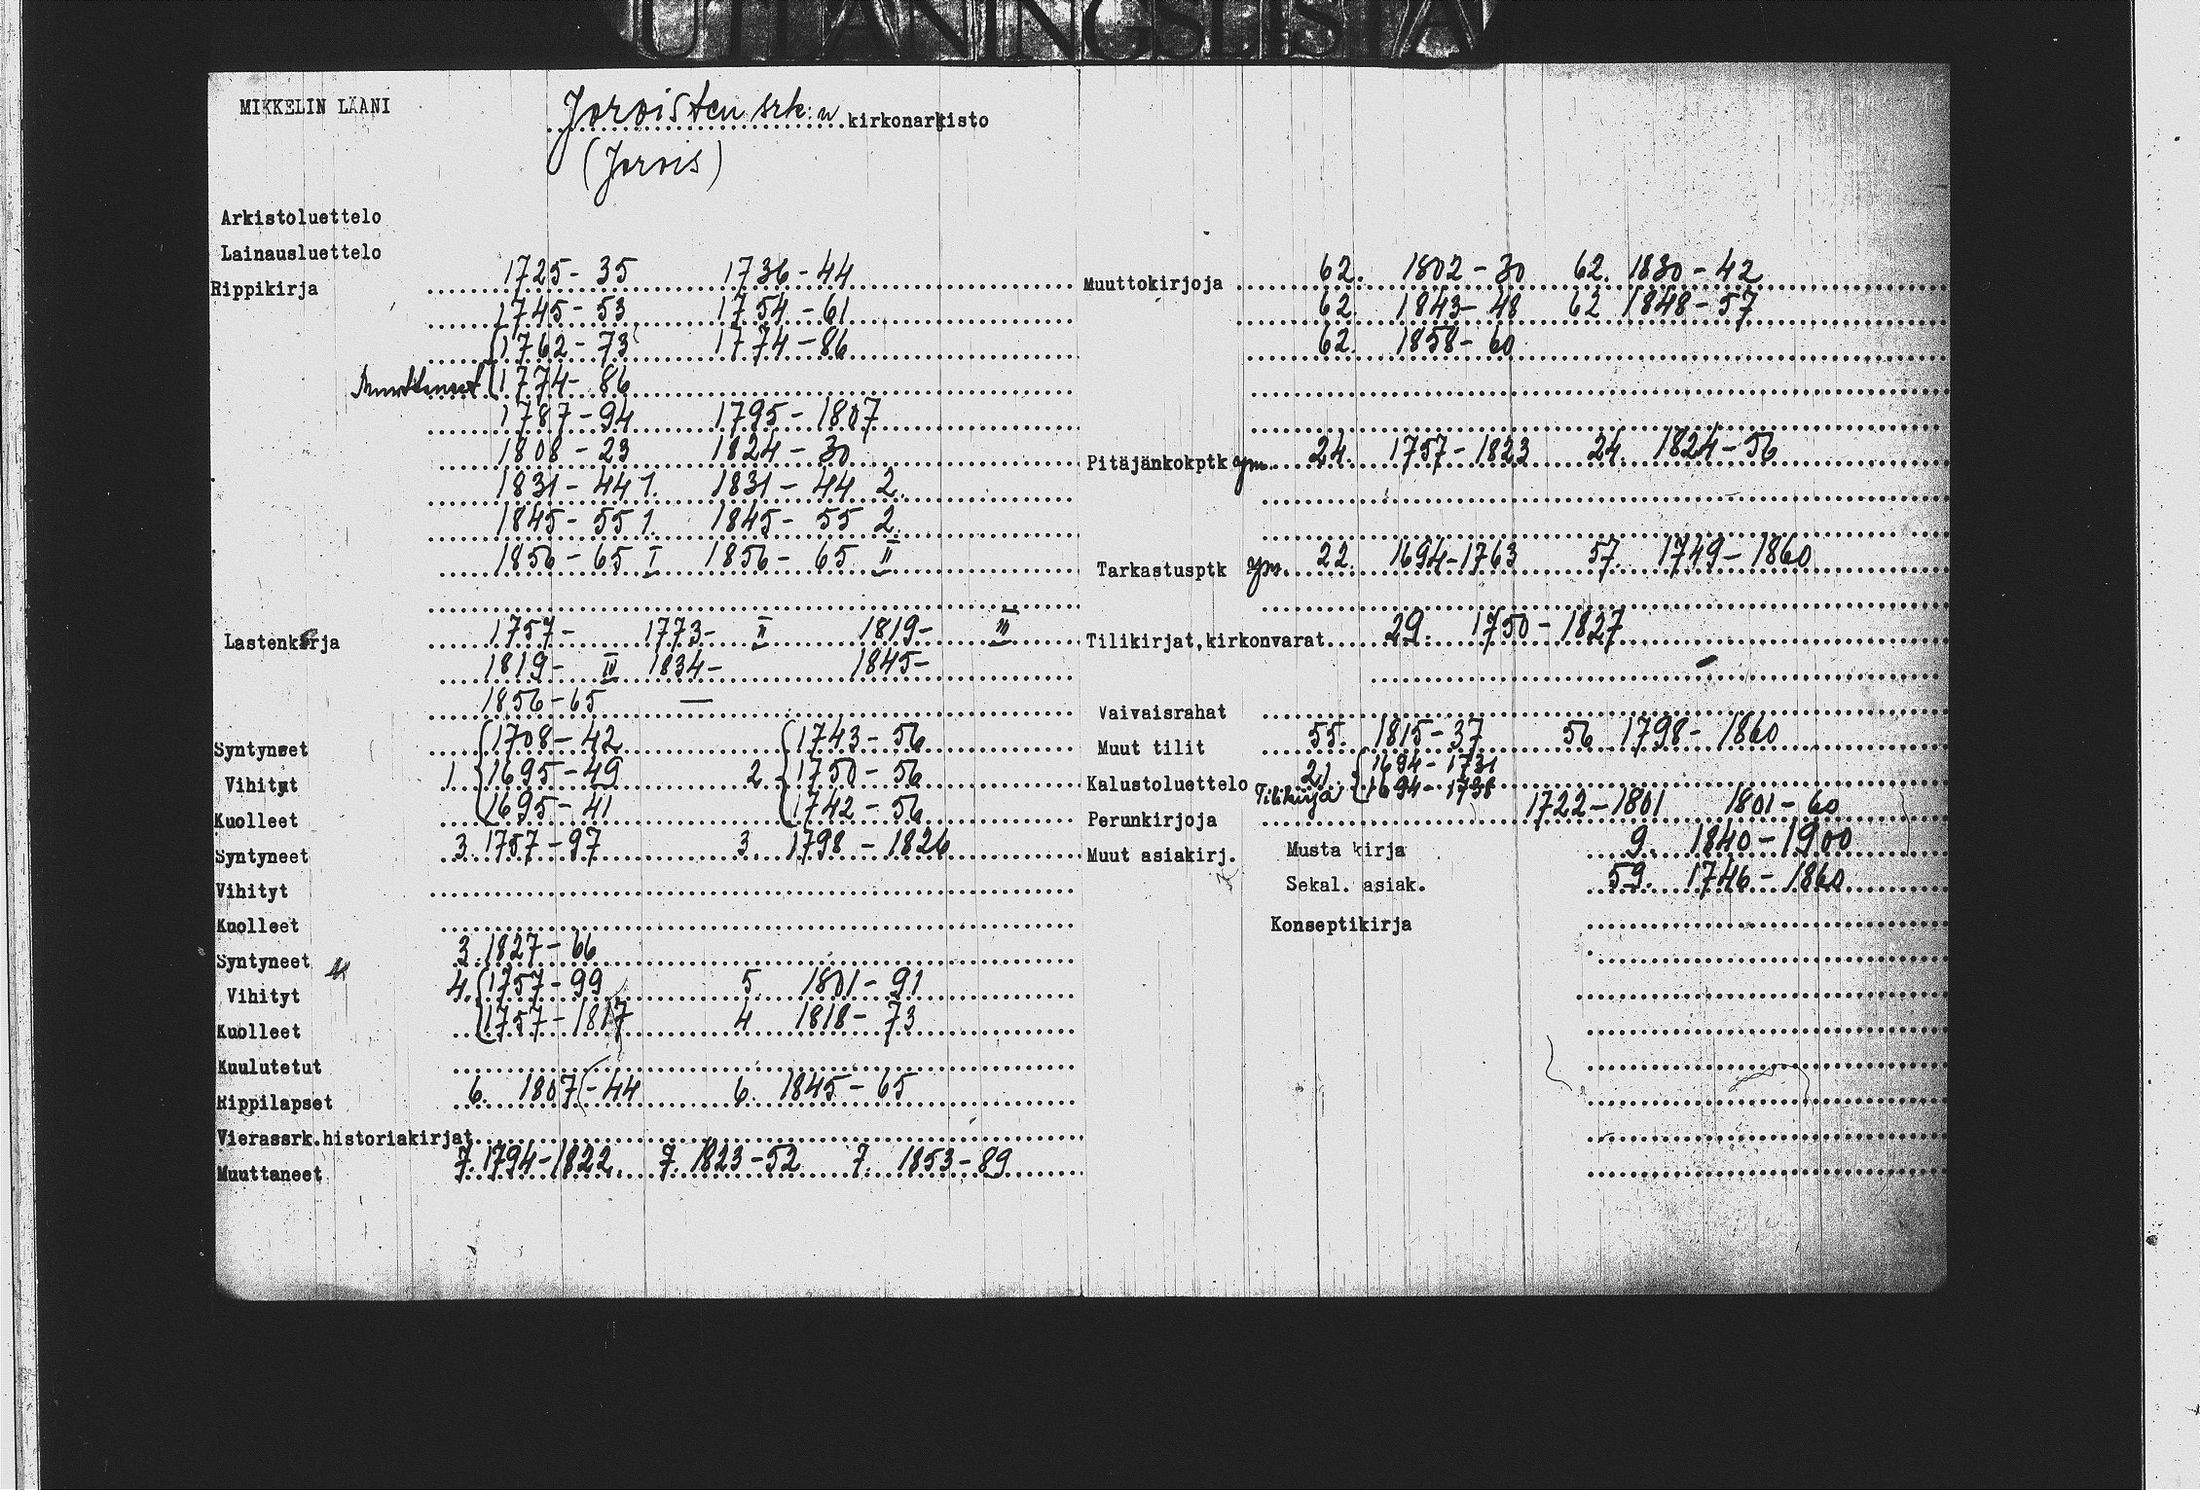 UTTANINGSLISTA
MIKKELIN LÄÄNI
Joroisten srk:n kirkonarkisto
(Jorois)
Arkistoluettelo
Lainausluettelo
Rippikirja 1725-35 1736-44
1745-53 1754-61
1762-73 1774-86
1774-86
1787-94 1795-1807
1808-23 1824-30
1831-44 1. 1831-44 2.
1845-55 1. 1845-55 2.
1856-65 I 1856-65 II
Lastenkirja 1757- 1773- II 1819- III
1819- IV 1834- 1845-
1856-65 —
Syntyneet 1708-42 1743-56
Vihityt 1. 1695-49 2. 1750-56
Kuolleet 1695-41 1742-56
Syntyneet 3. 1757-97 3. 1798-1826
Vihityt
Kuolleet
Syntyneet 3. 1827-66
Vihityt 4. 1757-99 5. 1801-91
Kuolleet 1757-1817 4 1818-73
Kuulutetut
Rippilapset 6. 1807-44 6. 1845-65
Vierassrk.historiakirjat
Muuttaneet 7. 1794-1822. 7. 1823-52 7. 1853-89
Muuttokirjoja 62. 1802-30 62. 1830-42
62. 1843-48 62 1848-57
62. 1858-60
Pitäjänkokptk ym. 24. 1757-1823 24. 1824-56
Tarkastusptk ym. 22. 1694-1763 57. 1749-1860
Tilikirjat,kirkonvarat 29. 1750-1827
Vaivaisrahat
Muut tilit 55. 1815-37 56 1798-1860
Kalustoluettelo 21. 1694-1731
Tilikirja 1694-1738
Perunkirjoja 1722-1801 1801-60
Muut asiakirj. Musta kirja 9. 1840-1900
Sekal. asiak. 59. 1746-1860
Konseptikirja